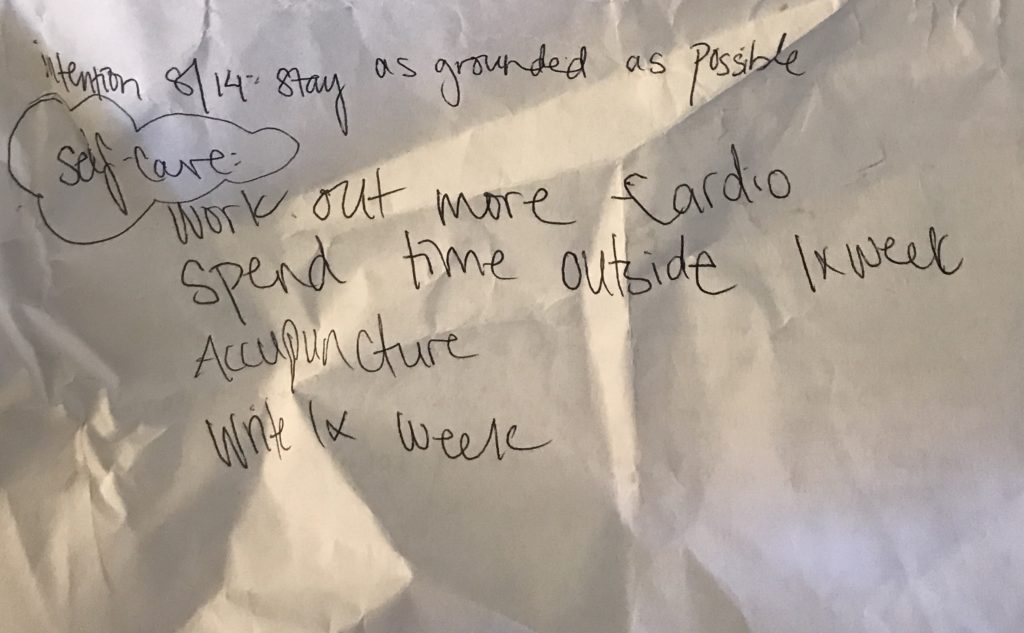 intention 8/14- stay as grounded as possible
self-care:
work out more cardio
spend time outside 1x week
Accupuncture
write 1x week